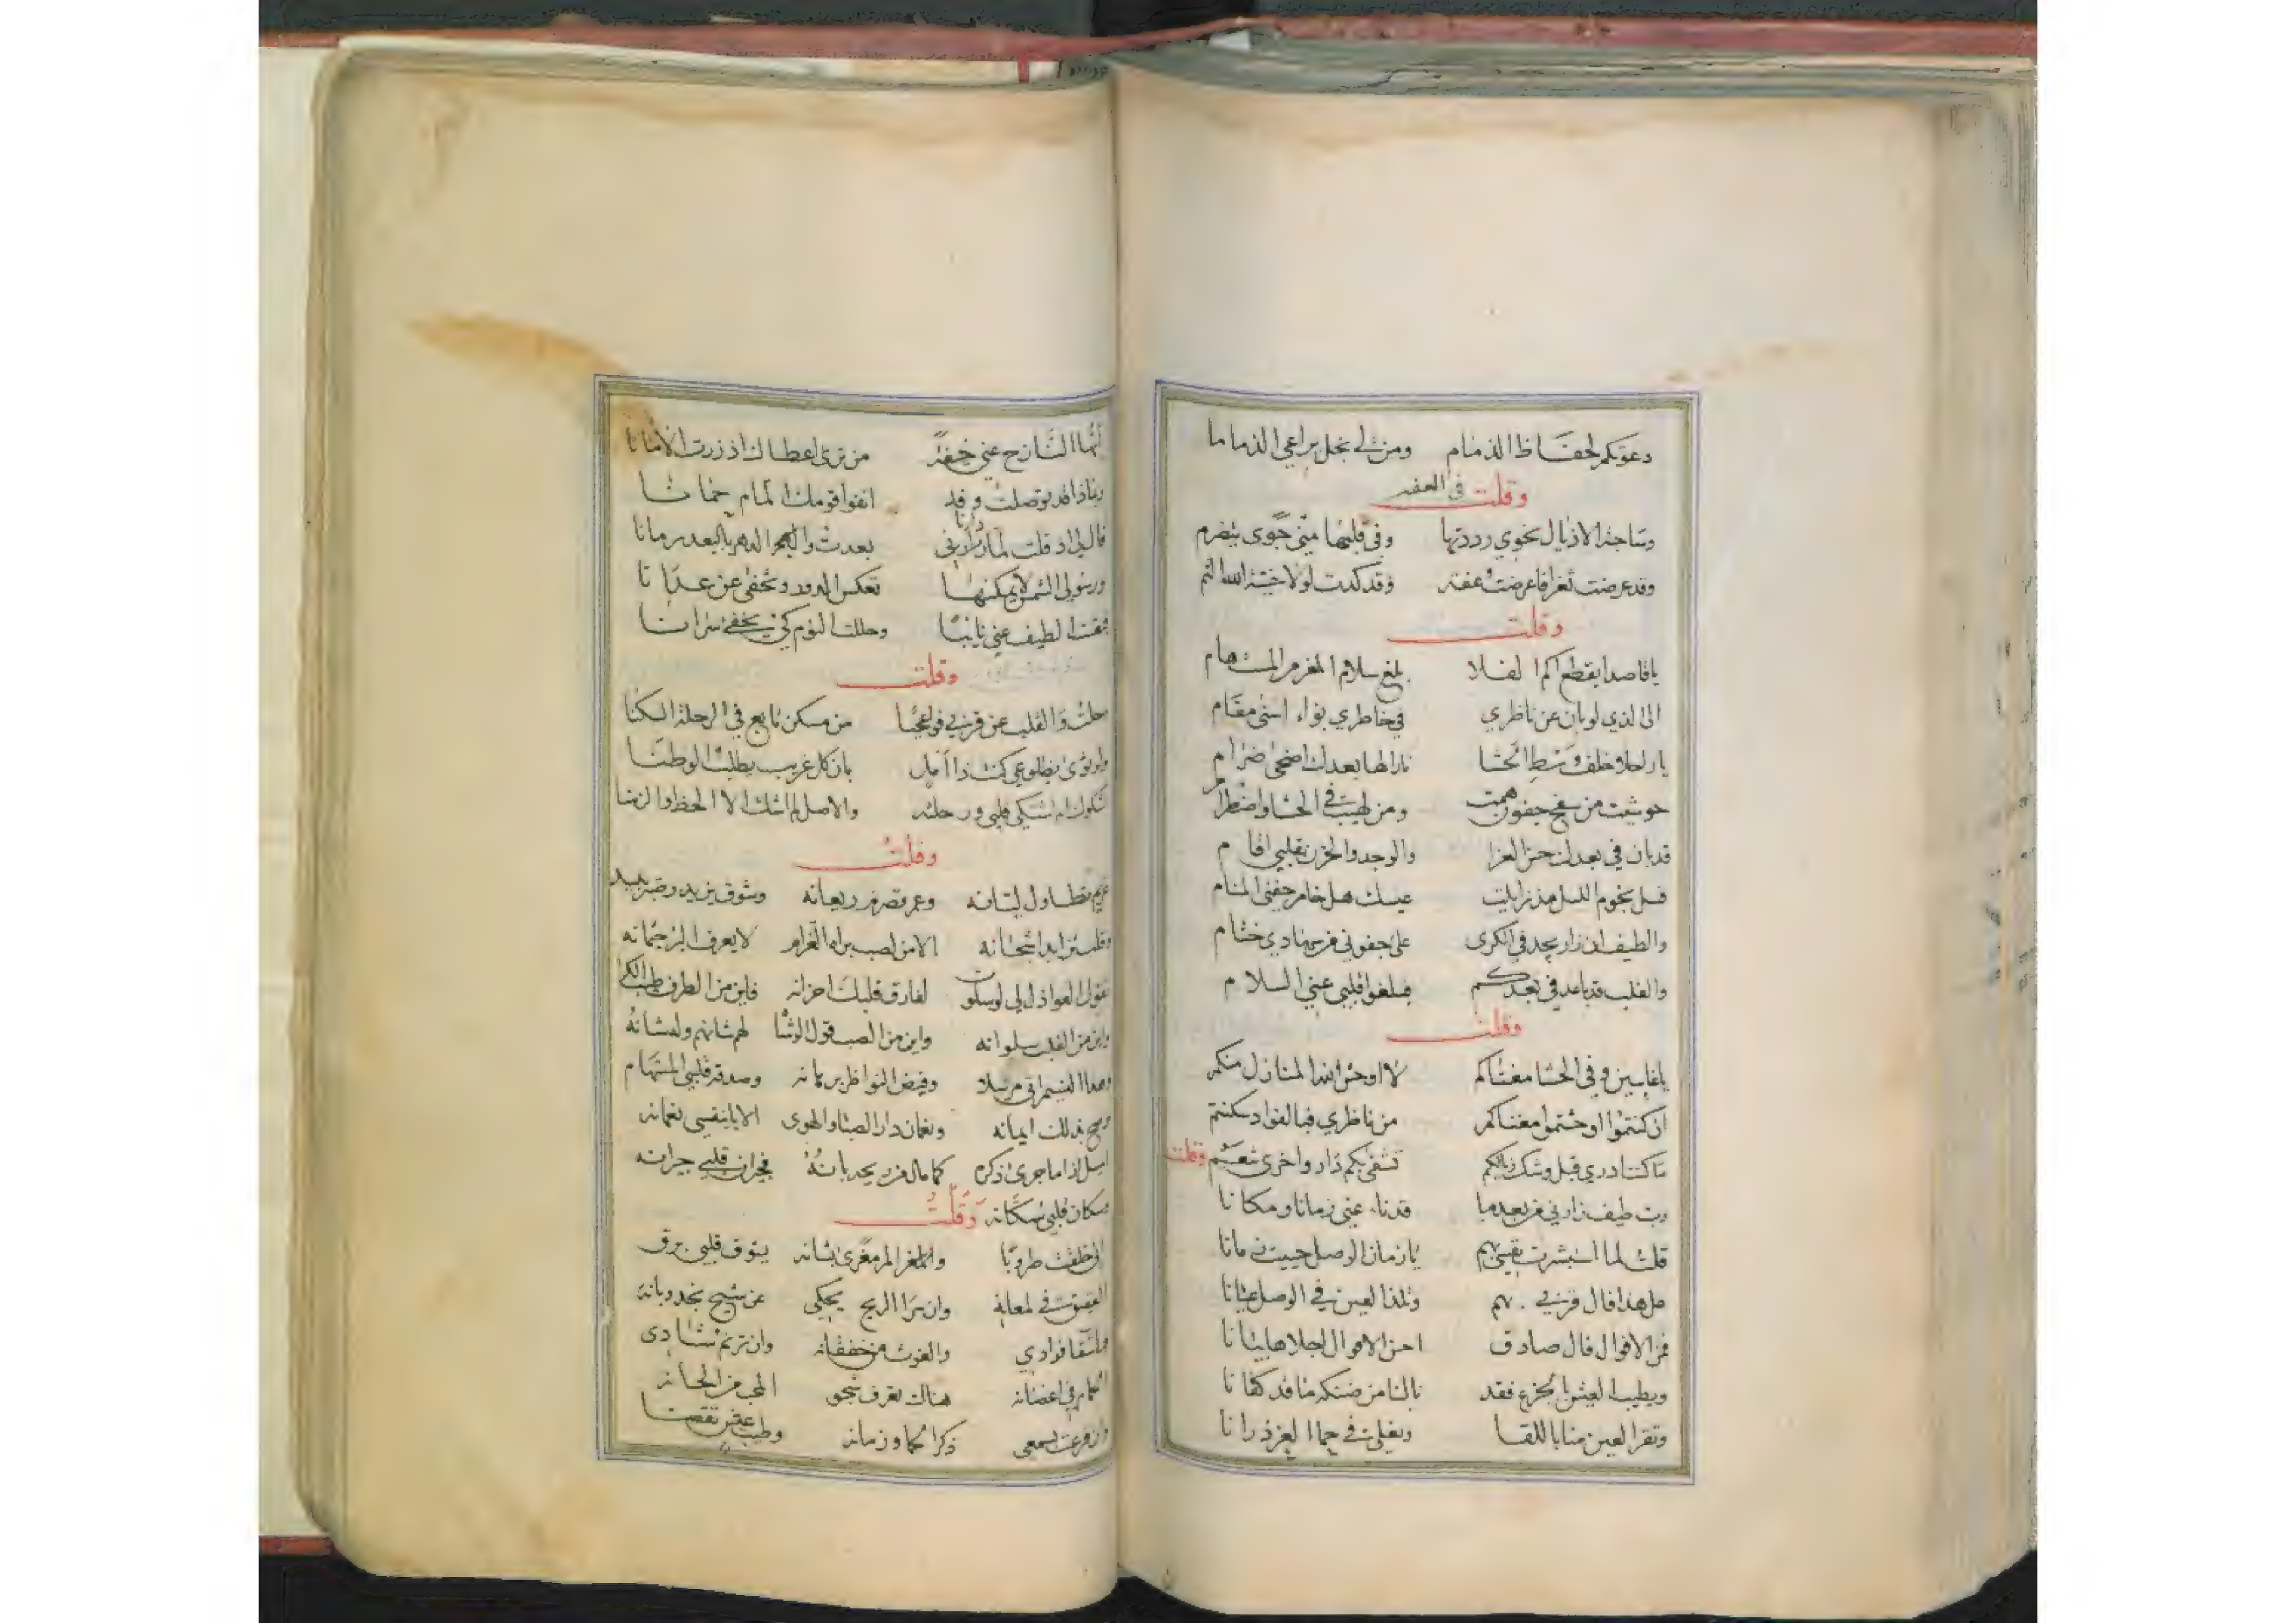 دعوتكم لحفاظ الذمام ومن لي بخل يراعي الذماما
وقلت في العفه
وساحبة الاذيال نحوي رددتها وفي قلبها مني جوى يتضرم
وقد عرضت ثغرا فاعرضت عفة وقد كدت لولا خشية الله الثم
وقلت
يا قاصدا يقطع اكم الفلا بلغ سلام المغرم المستهام
الى الذي لو بان عن ناظري في خاطري بواء اسنى مقام
يا راحلا وخلف وسط الحشا نارا لها بعدك اضحى ضرام
حوشيت من سفح جفون همت ومن لهيب في الحشا واضطرام
قد بان في بعدك حسن العزا والوجد والحزن بقلبي اقام
فسل نجوم الليل مذ زايلت عيسك هل خامر جفني المنام
والطيف ان زار يجد في الكرى على جفوني
والقلب قد باعد في بعدكم فبلغوا قلبي عني السلام
وقلت
يا غايبين وفي الحشا مغناكم لا اوحش الله المنازل منكم
ان كنتموا اوحشتموا مغناكم من ناظري فبالفواد سكنتم
ما كنت ادري قبل وشك زيالكم تشقى بكم دار واخرى تنعم
وقلت
رب طيف زارني من بعد ما قد ناء عني زمانا ومكانا
قلت لما استبشرت نفسي بهم يا زمان الوصل حييت زمانا
هل هذا فال قربي بهم ولذا العين في الوصل عيانا
فمن الاقوال فال صادق احسن الاقوال اجلاها بيانا
ويطيب العيش بالجزع فقد نالنا من ضنكه ما قد كفانا
وتقر العين منا باللقا
ايها النازح عني خيفة من ترى اعطاك اذ زرت الامانا
وبماذا قد توصلت وقد
قال لي اذ قلت لما زارني بعدت والهجر
ورسولي الشمس لا يمكنها تعكس الدور وتخفى عن عدانا
فبعثت الطيف عني نايبا وجعلت النوم كي يخفي سرانا
وقلت
رحلت والقلب عن قربي فوا عجبا من مسكن تابع في الرحلة السكنا
ولو ثوى بضلوعي كنت ذا امل بان كل غريب يطلب الوطنا
شكواك ام اشتكي قلبي ورحلته والاصل لم اشك الا الحظ والزمنا
وقلت
غريم تطاول ليانه وعمر تقضى ريعانه وشوق يزيد وصبر يبيد
وقلب تزايد اشجانه الا من لصب براه الغرام لا يعرف البرء جثمانه
تقول العواذل لي لو سلوت لفارق قلبك احزانه فاين من الطرف طيب الكرا
واين من القلب سلوانه واين من الصب قول الوشا لهم شانهم وله شانه
وهذا النسيم اتى مرسلا وفيض النواظر برهانه وصدقه قلبي المستهام
وصح بذلك ايمانه ونعمان دار الصبا والهوى الا يا بنفسي نعمانه
اميل اذا ما جرى ذكره كما مال من ريحه بانه فجيران قلبي جيرانه
وسكان قلبي سكانه
وقلت
اني خلقت طروبا والمغرم المرء مغرى بشانه يتوق قلبي برق
العقيق في لمعانه وان سرا الريح يحكي عن شيح نجد وبانه
ما شقا فوادي والغوث من خفقانه وان ترنم شادي
الحمام في اغصانه هناك تعرف شجو المحب من الحانه
وان قرعت بسمعي ذكر الحما وزمانه وطيب عيش تقضى